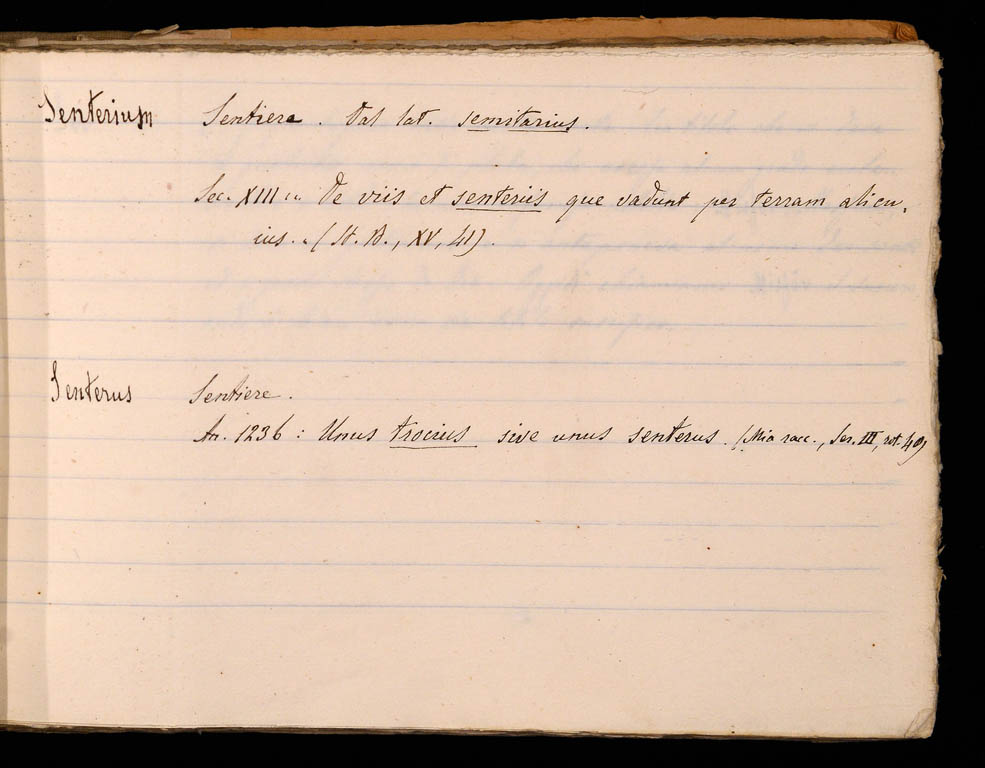 Senterium Sentiere. Dal lat. semitarius.
Sec. XIII: De viis et senteriis que vadunt per terram alicu-
ius. (St. B., XV, 41).
Senterus Sentiere.
An. 1236: Unus trocius sive unus senterus. (Mia racc., Ser. III, rot. 40)